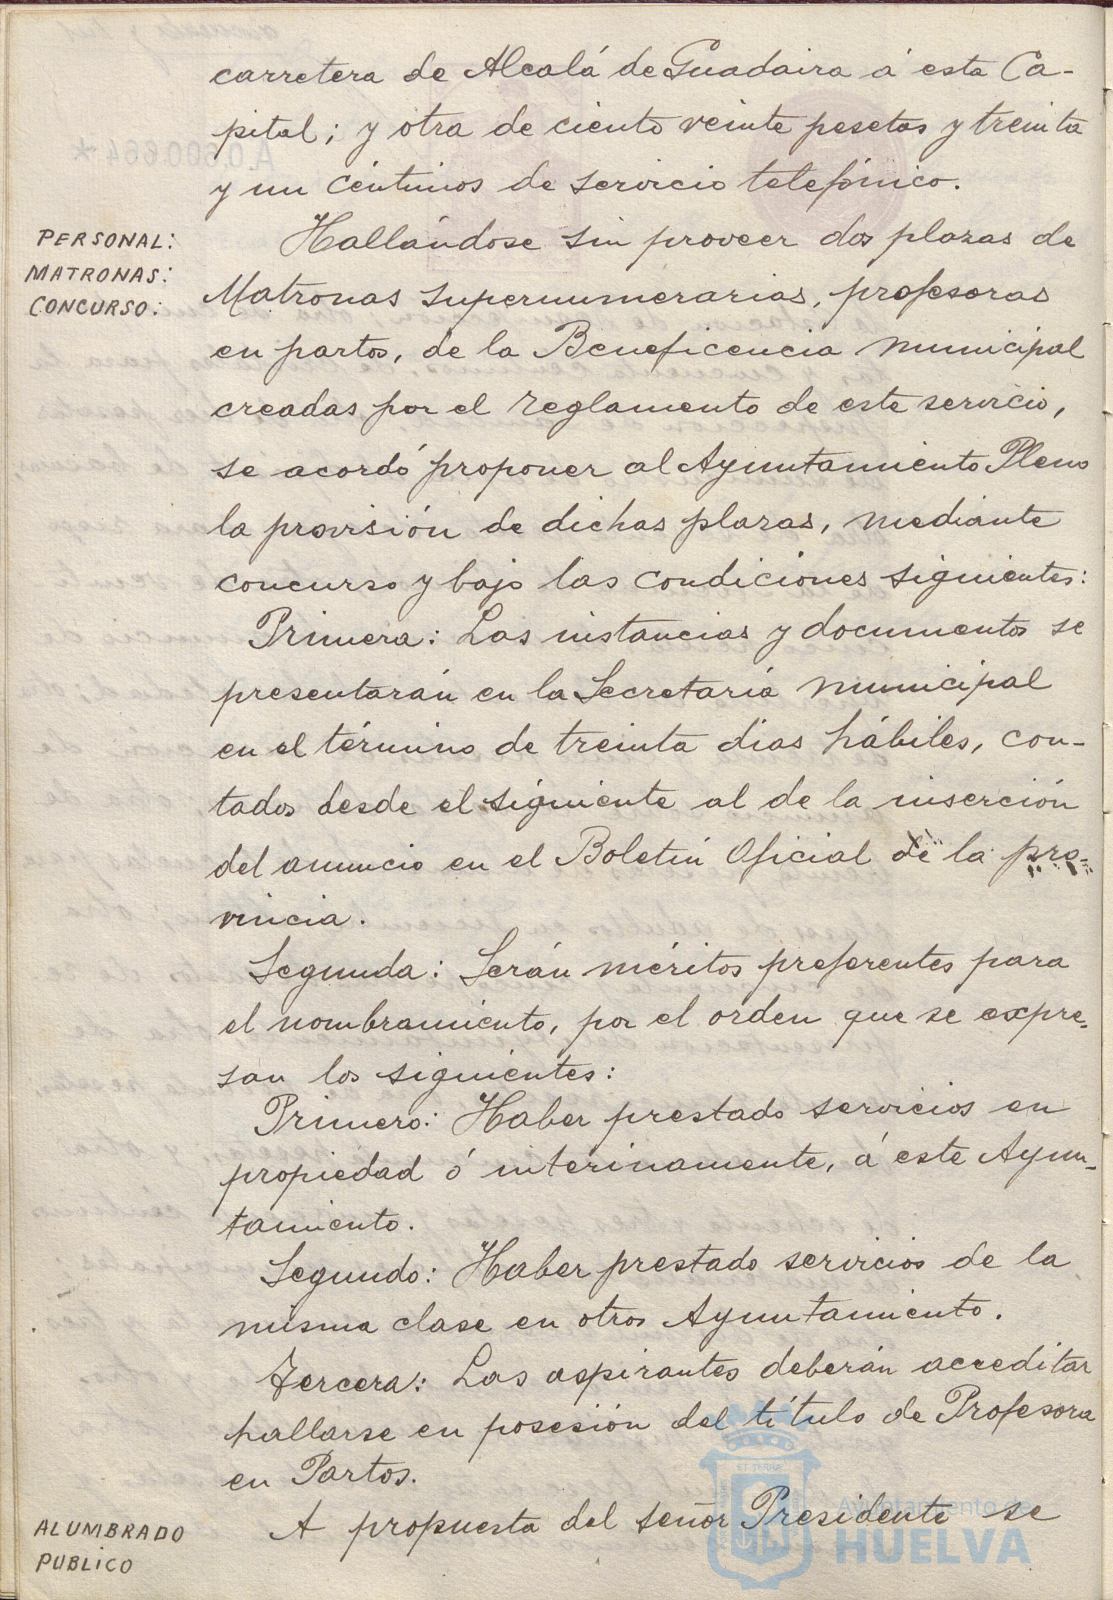 carretera de Alcalá de Guadaira á esta Ca-
pital; y otra de ciento veinte pesetas y treinta
y un céntimos de servicio telefónico.
PERSONAL:
MATRONAS:
CONCURSO:
Hallándose sin proveer dos plazas de
Matronas supernumerarias, profesoras
en partos, de la Beneficencia municipal
creadas por el reglamento de este servicio,
se acordó proponer al Ayuntamiento Pleno
la provisión de dichas plazas, mediante
concurso y bajo las condiciones siguientes:
Primera: Las instancias y documentos se
presentarán en la Secretaría municipal
en el término de treinta dias hábiles, con-
tados desde el siguiente al de la inserción
del anuncio en el Boletín Oficial de la pro-
vincia.
Segunda: Serán méritos preferentes para
el nombramiento, por el orden que se expre-
san los siguientes:
Primero: Haber prestado servicios en
propiedad ó interinamente, á este Ayun-
tamiento.
Segundo: Haber prestado servicios de la
misma clase en otros Ayuntamiento.
Tercera: Las aspirantes deberán acreditar
hallarse en posesión del título de Profesora
en Partos.
ALUMBRADO
PUBLICO
A propuesta del señor Presidente se
Ayuntamiento de
HUELVA
A.0.600.664*